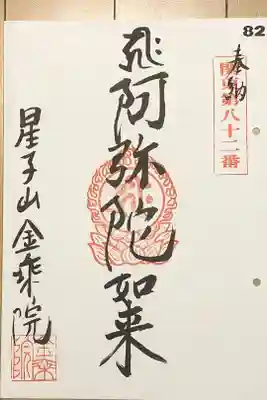 82
奉納
関東第八十二番
阿弥陀如来
星子山金乗院